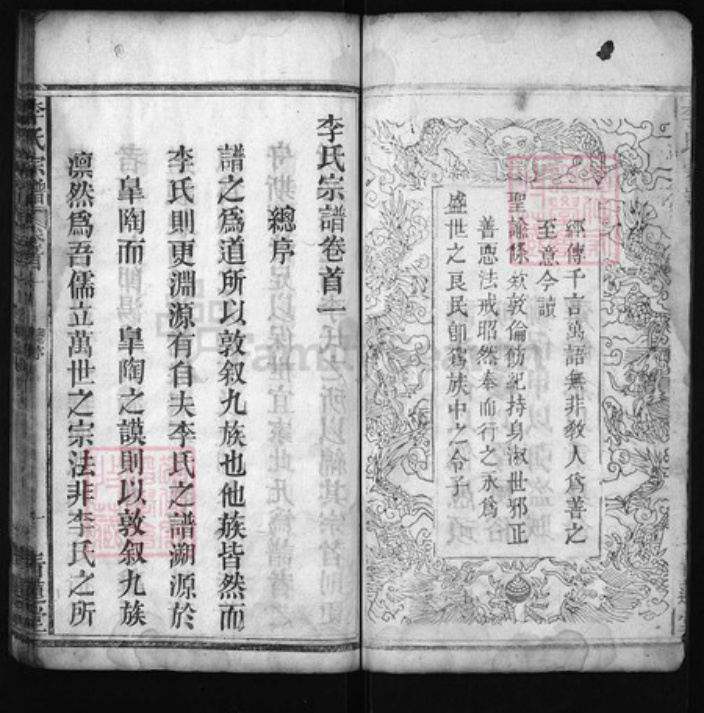 經傳千言萬語無非教人為善之
至意今讀
聖諭條欵敦倫飭紀持身淑世邪正
善惡法戒昭然奉而行之永為
盛世之良民即為族中之令子
李氏宗譜卷首一
總序
譜之為道所以敦叙九族也他族皆然而
李氏則更淵源有自夫李氏之譜溯源於
臯陶而 臯陶之謨則以敦叙九族
凛然為吾儒立萬世之宗法非李氏之所
李氏宗譜 卷首